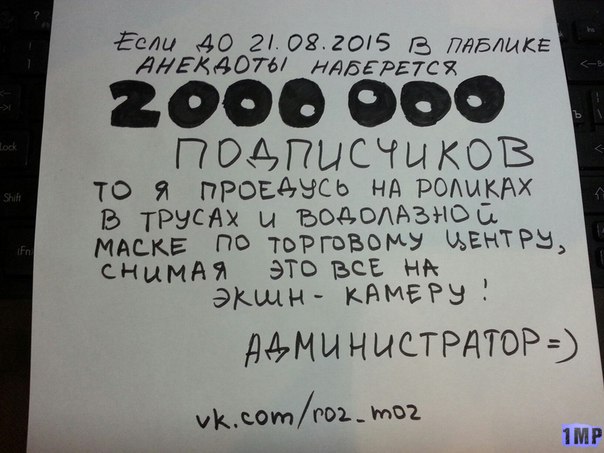 Если до 21.08.2015 в паблике
анекдоты наберется
2000 000
подписчиков
то я проедусь на роликах
в трусах и водолазной
маске по торговому центру,
снимая это все на
экшн-камеру!
Администратор=)
vk.com/roz_moz
1MP
lock
Shift
Fn